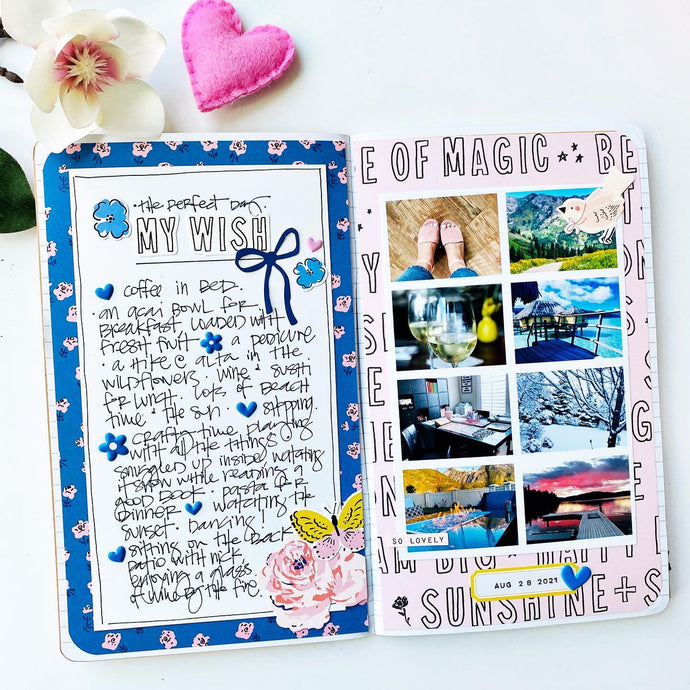 • the perfect day
MY WISH
coffee in bed.
an acai bowl for
breakfast, loaded with
fresh fruit. a pedicure
. a hike @ alta in the
wildflowers. wine & sushi
for lunch. lots of beach
time & the sun. shopping.
crafty time playing
with all the things
snuggled up inside watching
it snow while reading a
good book. pasta for
dinner. watching the
sunset. dancing!
sitting on the back
patio with nick
enjoying a glass
of wine by the fire.
E OF MAGIC BE
SO LOVELY
AM BIG
HAPPY
AUG 28 2021
SUNSHINE + S